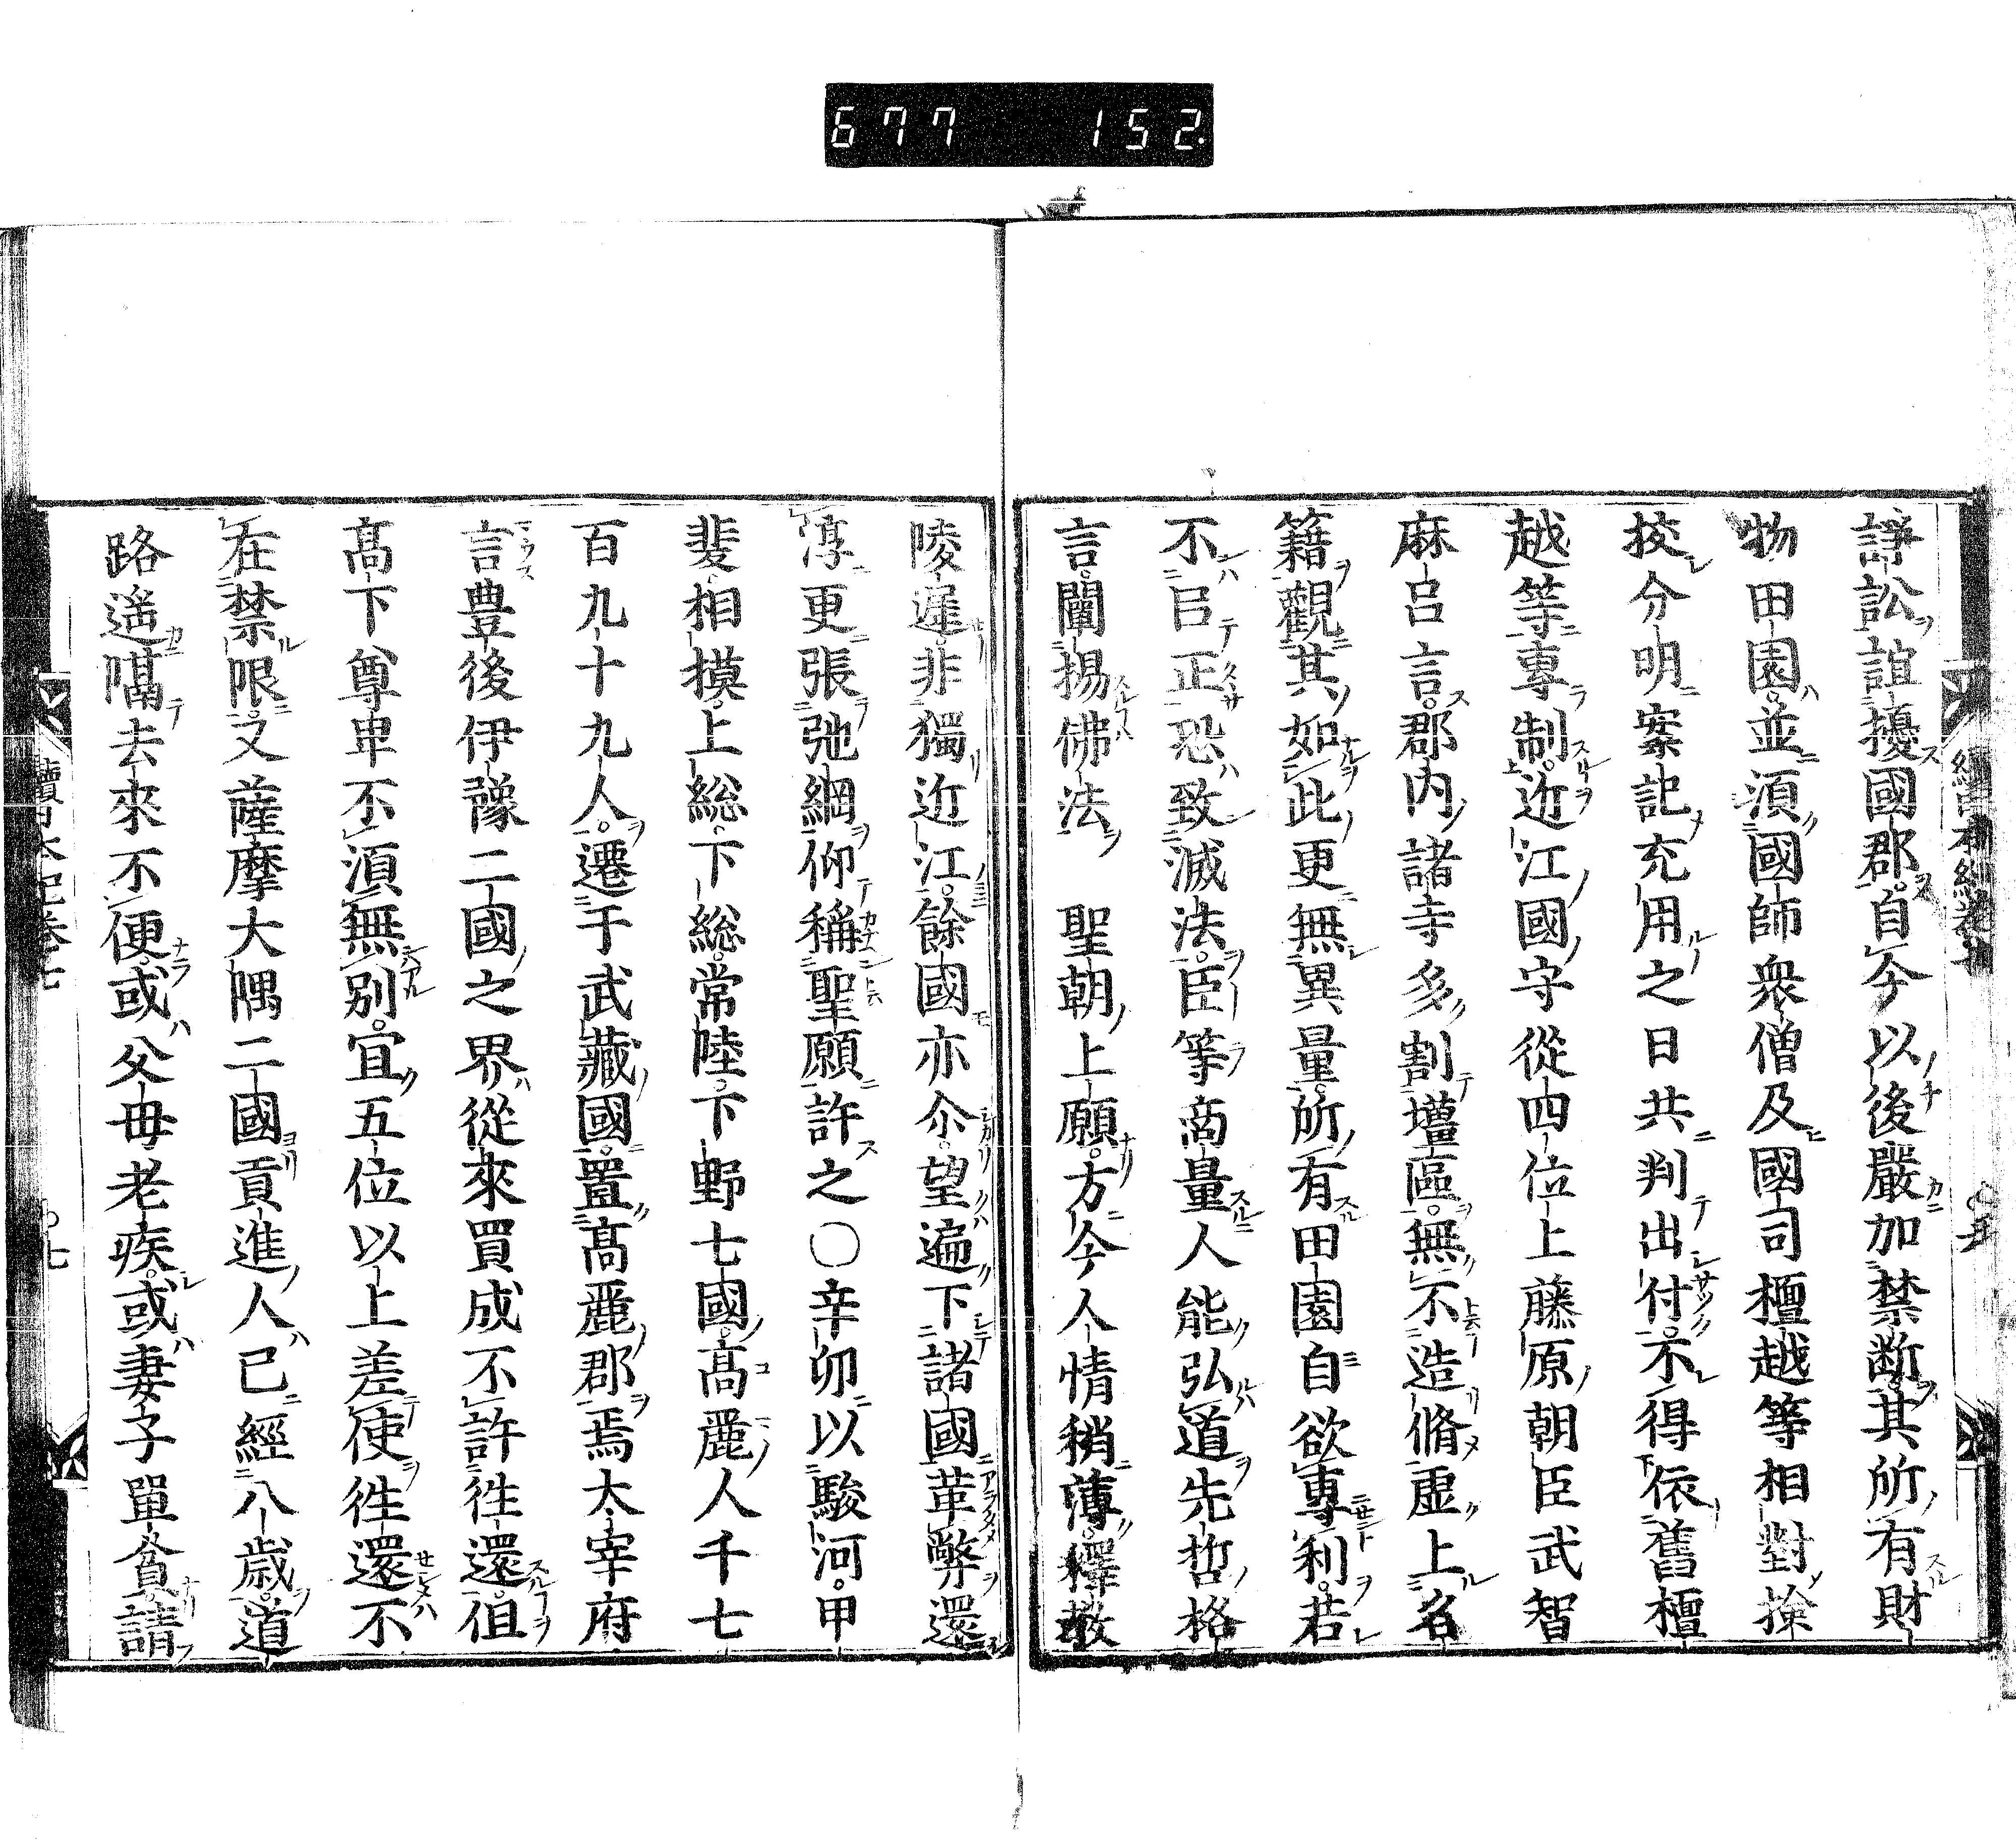 677 152.
諍訟諠擾國郡自今以後嚴加禁斷其所有財
物田園並須國師衆僧及國司檀越等相對撿
挍分明案記充用之日共判出付不得依舊檀
越等專制近江國守從四位上藤原朝臣武智
麻呂言郡内諸寺多割壃區無不造脩虚上名
籍觀其如此更無異量所有田園自欲專利若
不㠯正恐致滅法臣等商量人能弘道先哲格
言闡揚佛法　聖朝上願方今人情稍薄釋敎
陵遲非獨近江餘國亦尒望遍下諸國革弊還
淳更張弛綱仰稱聖願許之〇辛卯以駿河甲
斐相摸上総下総常陸下野七國高麗人千七
百九十九人遷于武藏國置高麗郡焉太宰府
言豊後伊豫二國之界從來買戍不許徃還但
高下尊卑不須無別宜五位以上差使徃還不
在禁限又薩摩大隅二國貢進人已經八歳道
路遥隔去來不便或父母老疾或妻子單貧請
續日本紀卷七
〇七